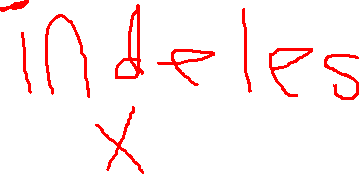 indeles
x